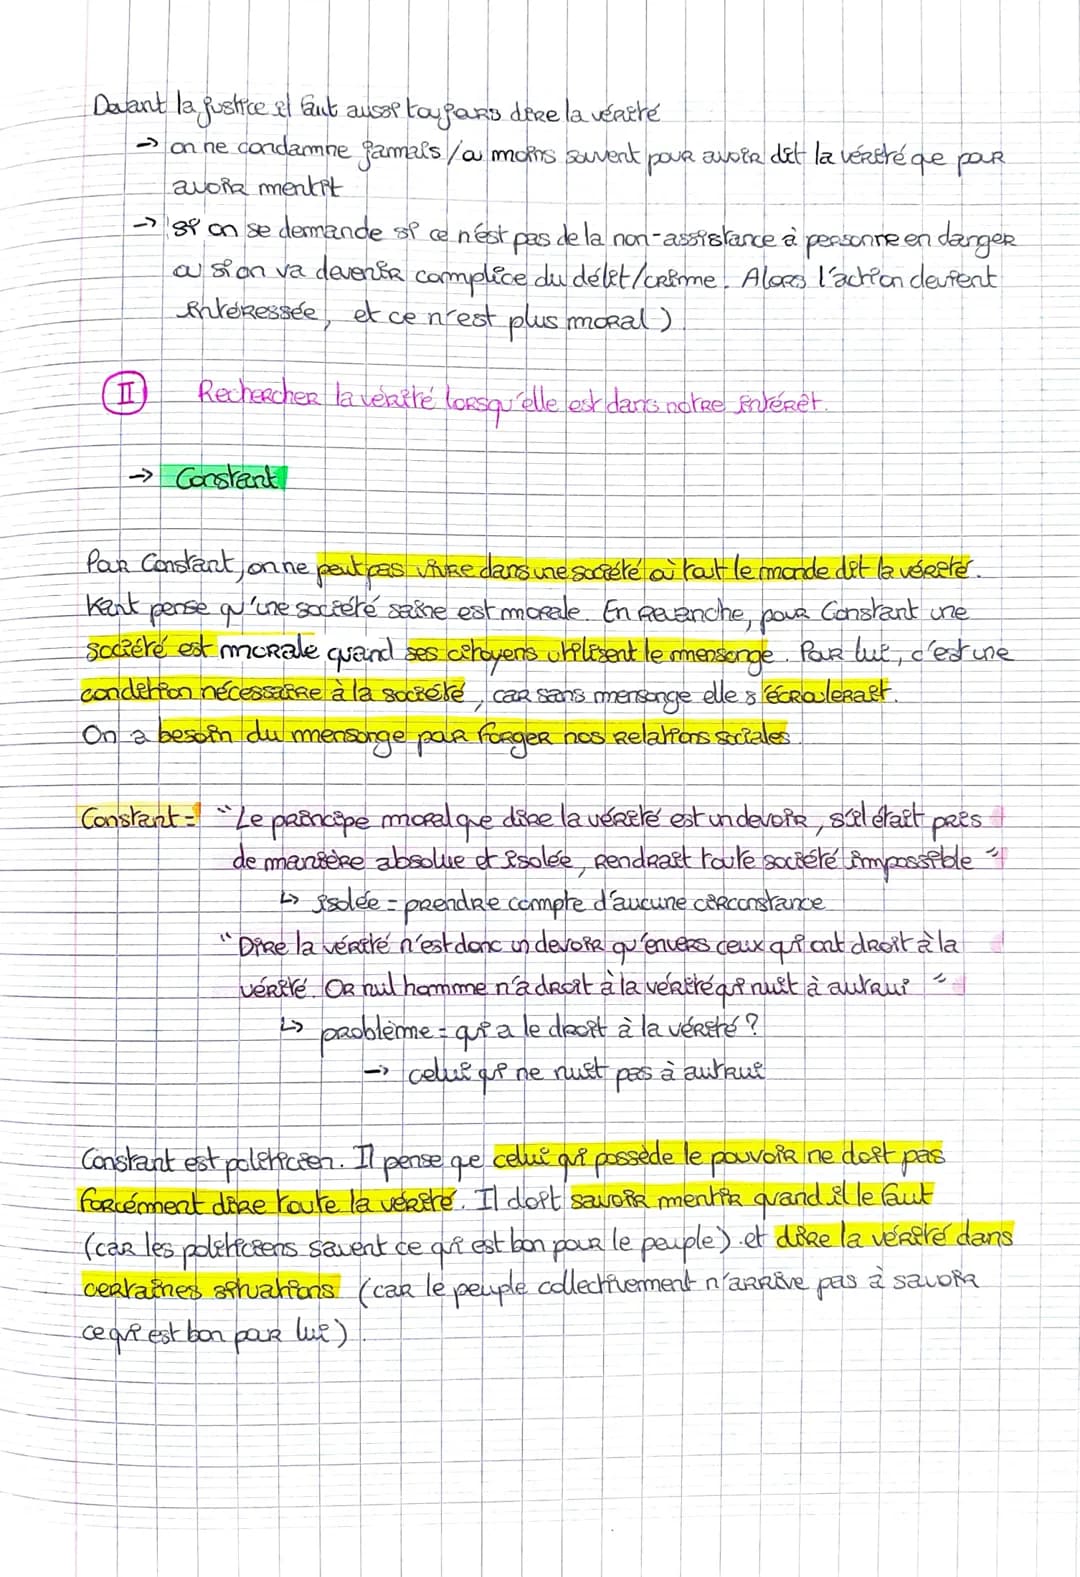 Devant la justice il faut aussi toujours dire la vérité
→ on ne condamne jamais/ou moins souvent pour avoir dit la vérité que pour
avoir mentit
→ si on se demande si ce n'est pas de la non-assistance à personne en danger
ou si on va devenir complice du délit/crime. Alors l'action devient
intéressée, et ce n'est plus moral)
II Rechercher la vérité lorsqu'elle est dans notre intérêt.
→ Constant
Pour Constant, on ne peut pas vivre dans une société où tout le monde dit la vérité.
Kant pense qu'une société saine est morale. En revanche, pour Constant une
société est morale quand ses citoyens utilisent le mensonge. Pour lui, c'est une
condition nécessaire à la société, car sans mensonge elle s'écroulerait.
On a besoin du mensonge pour forger nos relations sociales.
Constant = "Le principe moral que dire la vérité est un devoir, s'il était pris
de manière absolue et isolée, rendrait toute société impossible"
↳ isolée = prendre compte d'aucune circonstance
"Dire la vérité n'est donc un devoir qu'envers ceux qui ont droit à la
vérité. Or nul homme n'a droit à la vérité qui nuit à autrui"
↳ problème = qui a le droit à la vérité ?
→ celui qui ne nuit pas à autrui
Constant est politicien. Il pense que celui qui possède le pouvoir ne doit pas
forcément dire toute la vérité. Il doit savoir mentir quand il le faut
(car les politiciens savent ce qui est bon pour le peuple) et dire la vérité dans
certaines situations (car le peuple collectivement n'arrive pas à savoir
ce qui est bon pour lui).